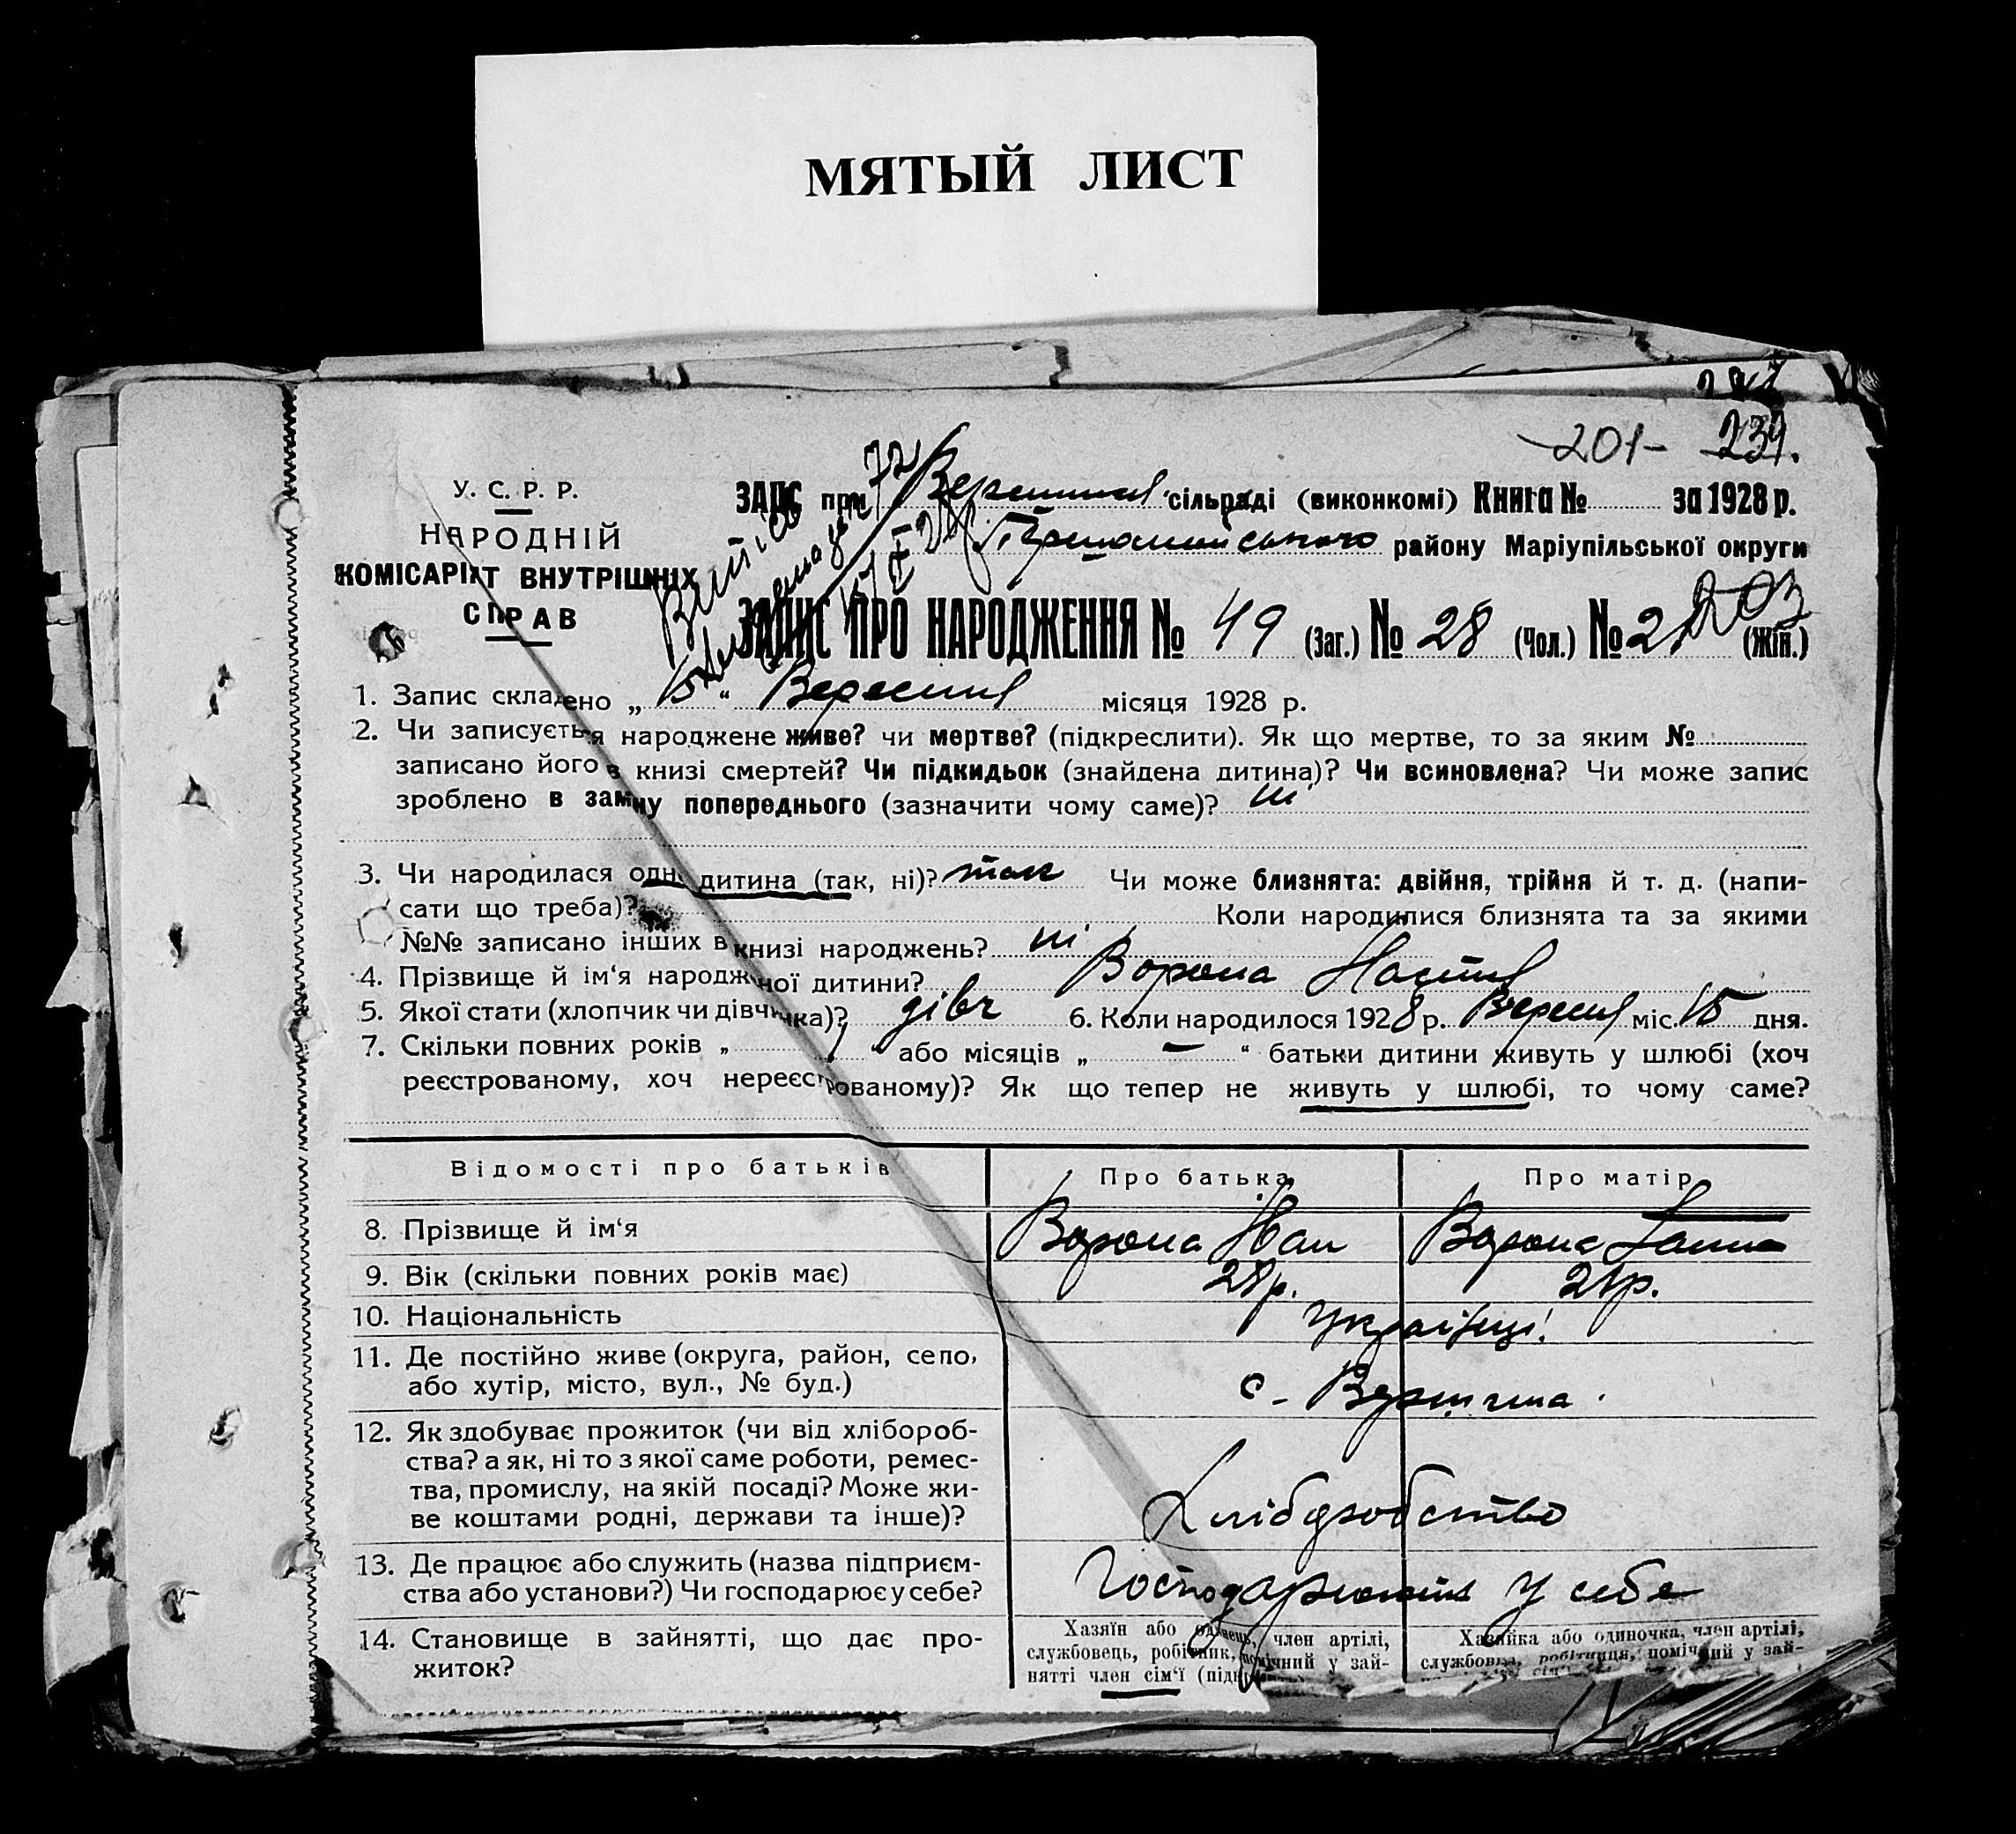 МЯТЫЙ ЛИСТ
201- 239.
У. С. Р. Р.
НАРОДНІЙ
КОМІСАРІЯТ ВНУТРІШНІХ
СПРАВ
ЗАПС при сільраді (виконкомі) Книга № за 1928 р.
району Маріупільської округи
ЗАПИС ПРО НАРОДЖЕННЯ № 49 (Заг.) № 28 (Чол.) № 21 (Жін.)
203
1. Запис складено „ 15 “ Вересня місяця 1928 р.
2. Чи записується народжене живе? чи мертве? (підкреслити). Як що мертве, то за яким №
записано його в книзі смертей? Чи підкидьок (знайдена дитина)? Чи всиновлена? Чи може запис
зроблено в заміну попереднього (зазначити чому саме)? ні
3. Чи народилася одна дитина (так, ні)? так Чи може близнята: двійня, трійня й т. д. (напи-
сати що треба)? Коли народилися близнята та за якими
№№ записано інших в книзі народжень? ні
4. Прізвище й ім‘я народженої дитини? Ворона Настя
5. Якої стати (хлопчик чи дівчинка)? дівч 6. Коли народилося 1928 р. Вересня міс. 15 дня.
7. Скільки повних років „ 1 “ або місяців „ — “ батьки дитини живуть у шлюбі (хоч
реєстрованому, хоч нереєстрованому)? Як що тепер не живуть у шлюбі, то чому саме?
Відомості про батьків Про батька Про матір
8. Прізвище й ім‘я Ворона Іван Ворона Ганна
9. Вік (скільки повних років має) 28 р. 21 р.
10. Національність Українці
11. Де постійно живе (округа, район, село,
або хутір, місто, вул., № буд.) с-Вершина.
12. Як здобуває прожиток (чи від хлібороб-
ства? а як, ні то з якої саме роботи, ремес-
тва, промислу, на якій посаді? Може жи-
ве коштами родні, держави та інше)? Хліборобство
13. Де працює або служить (назва підприєм-
ства або установи?) Чи господарює у себе? Господарюють у себе
14. Становище в зайнятті, що дає про-
житок?
Хазяїн або одинець, член артілі,
службовець, робітник, помічний у зай-
нятті член сім‘ї
Хазяйка або одиночка, член артілі,
службовка, робітниця, помічний у зай-